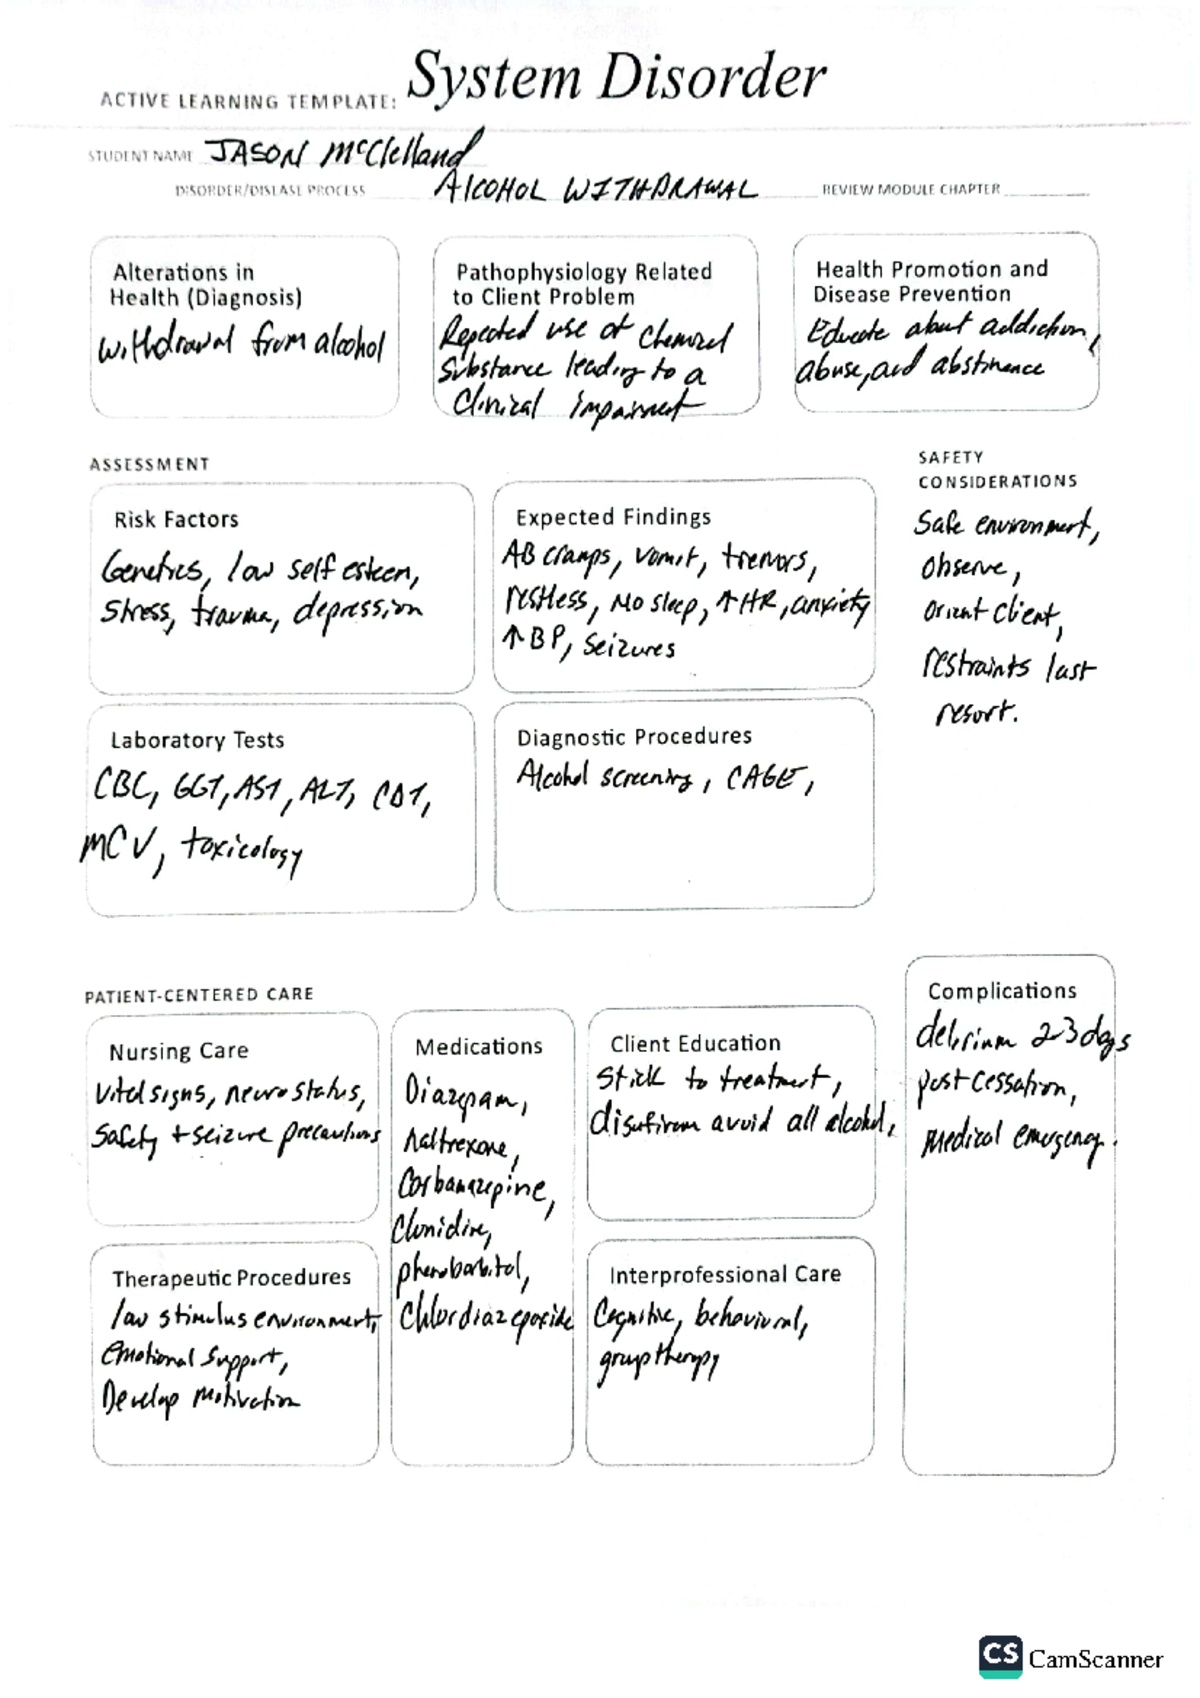 ACTIVE LEARNING TEMPLATE: System Disorder
STUDENT NAME JASON McClelland
DISORDER/DISEASE PROCESS ALCOHOL WITHDRAWAL REVIEW MODULE CHAPTER
Alterations in
Health (Diagnosis)
withdrawal from alcohol
Pathophysiology Related
to Client Problem
Repeated use of chemical
Substance leading to a
Clinical impairment
Health Promotion and
Disease Prevention
Educate about addiction,
abuse, and abstinence
ASSESSMENT
SAFETY
CONSIDERATIONS
Safe environment,
observe,
orient client,
restraints last
resort.
Risk Factors
Genetics, low self esteem,
Stress, trauma, depression
Expected Findings
AB cramps, vomit, tremors,
restless, No sleep, ↑HR, anxiety
↑BP, Seizures
Laboratory Tests
CBC, GGT, AST, ALT, CDT,
MCV, toxicology
Diagnostic Procedures
Alcohol screening, CAGE,
PATIENT-CENTERED CARE
Nursing Care
Vital signs, neuro status,
Safety + seizure precautions
Medications
Diazepam,
Naltrexone,
Carbamazepine,
Clonidine,
phenobarbitol,
Chlordiazepoxide
Client Education
Stick to treatment,
disulfiram avoid all alcohol,
Complications
delirium 2-3 days
post cessation,
Medical emergency.
Therapeutic Procedures
low stimulus environment,
emotional support,
Develop motivation
Interprofessional Care
Cognitive, behavioral,
group therapy
CS CamScanner